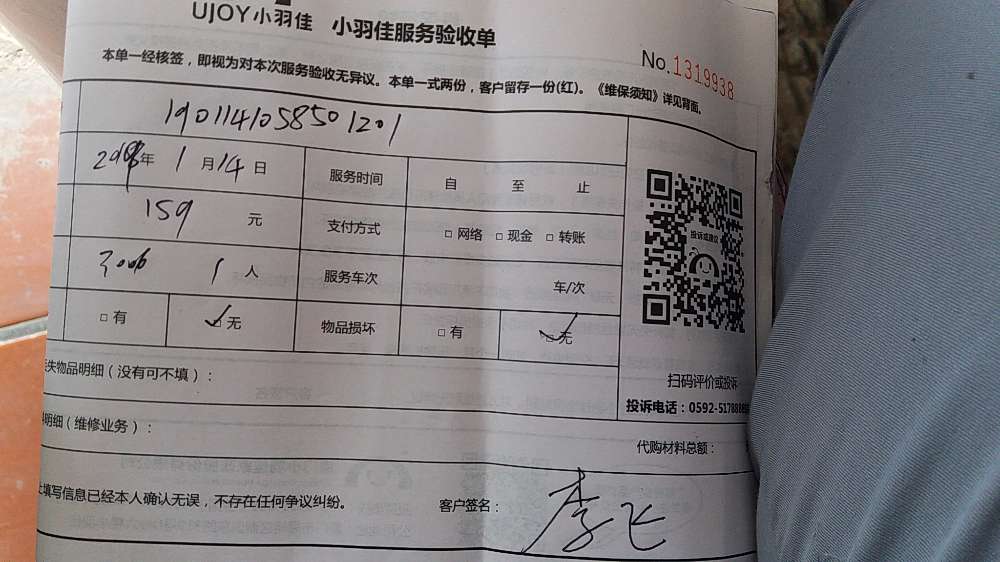 UJOY小羽佳 小羽佳服务验收单
No.1319938
本单一经核签，即视为对本次服务验收无异议。本单一式两份，客户留存一份(红)。《维保须知》详见背面。
1901141058501201
年 1月14日 服务时间 自 至 止
159 元 支付方式 □ 网络 □ 现金 □ 转账
1 人 服务车次 车/次
□ 有 ✓□ 无 物品损坏 □ 有 ✓□ 无
投诉或建议
扫码评价或投诉
投诉电话：0592-517888
失物品明细（没有可不填）：
明细（维修业务）：
代购材料总额：
上填写信息已经本人确认无误，不存在任何争议纠纷。
客户签名：李飞